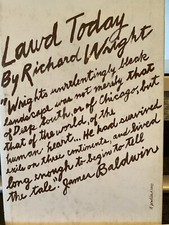 Lawd Today
By Richard Wright
"Wright's unrelentingly bleak
landscape was not merely that
of Deep South, or of Chicago, but
that of the world, of the
human heart... He had survived
exile on three continents, and lived
long enough to begin to tell
the tale." James Baldwin